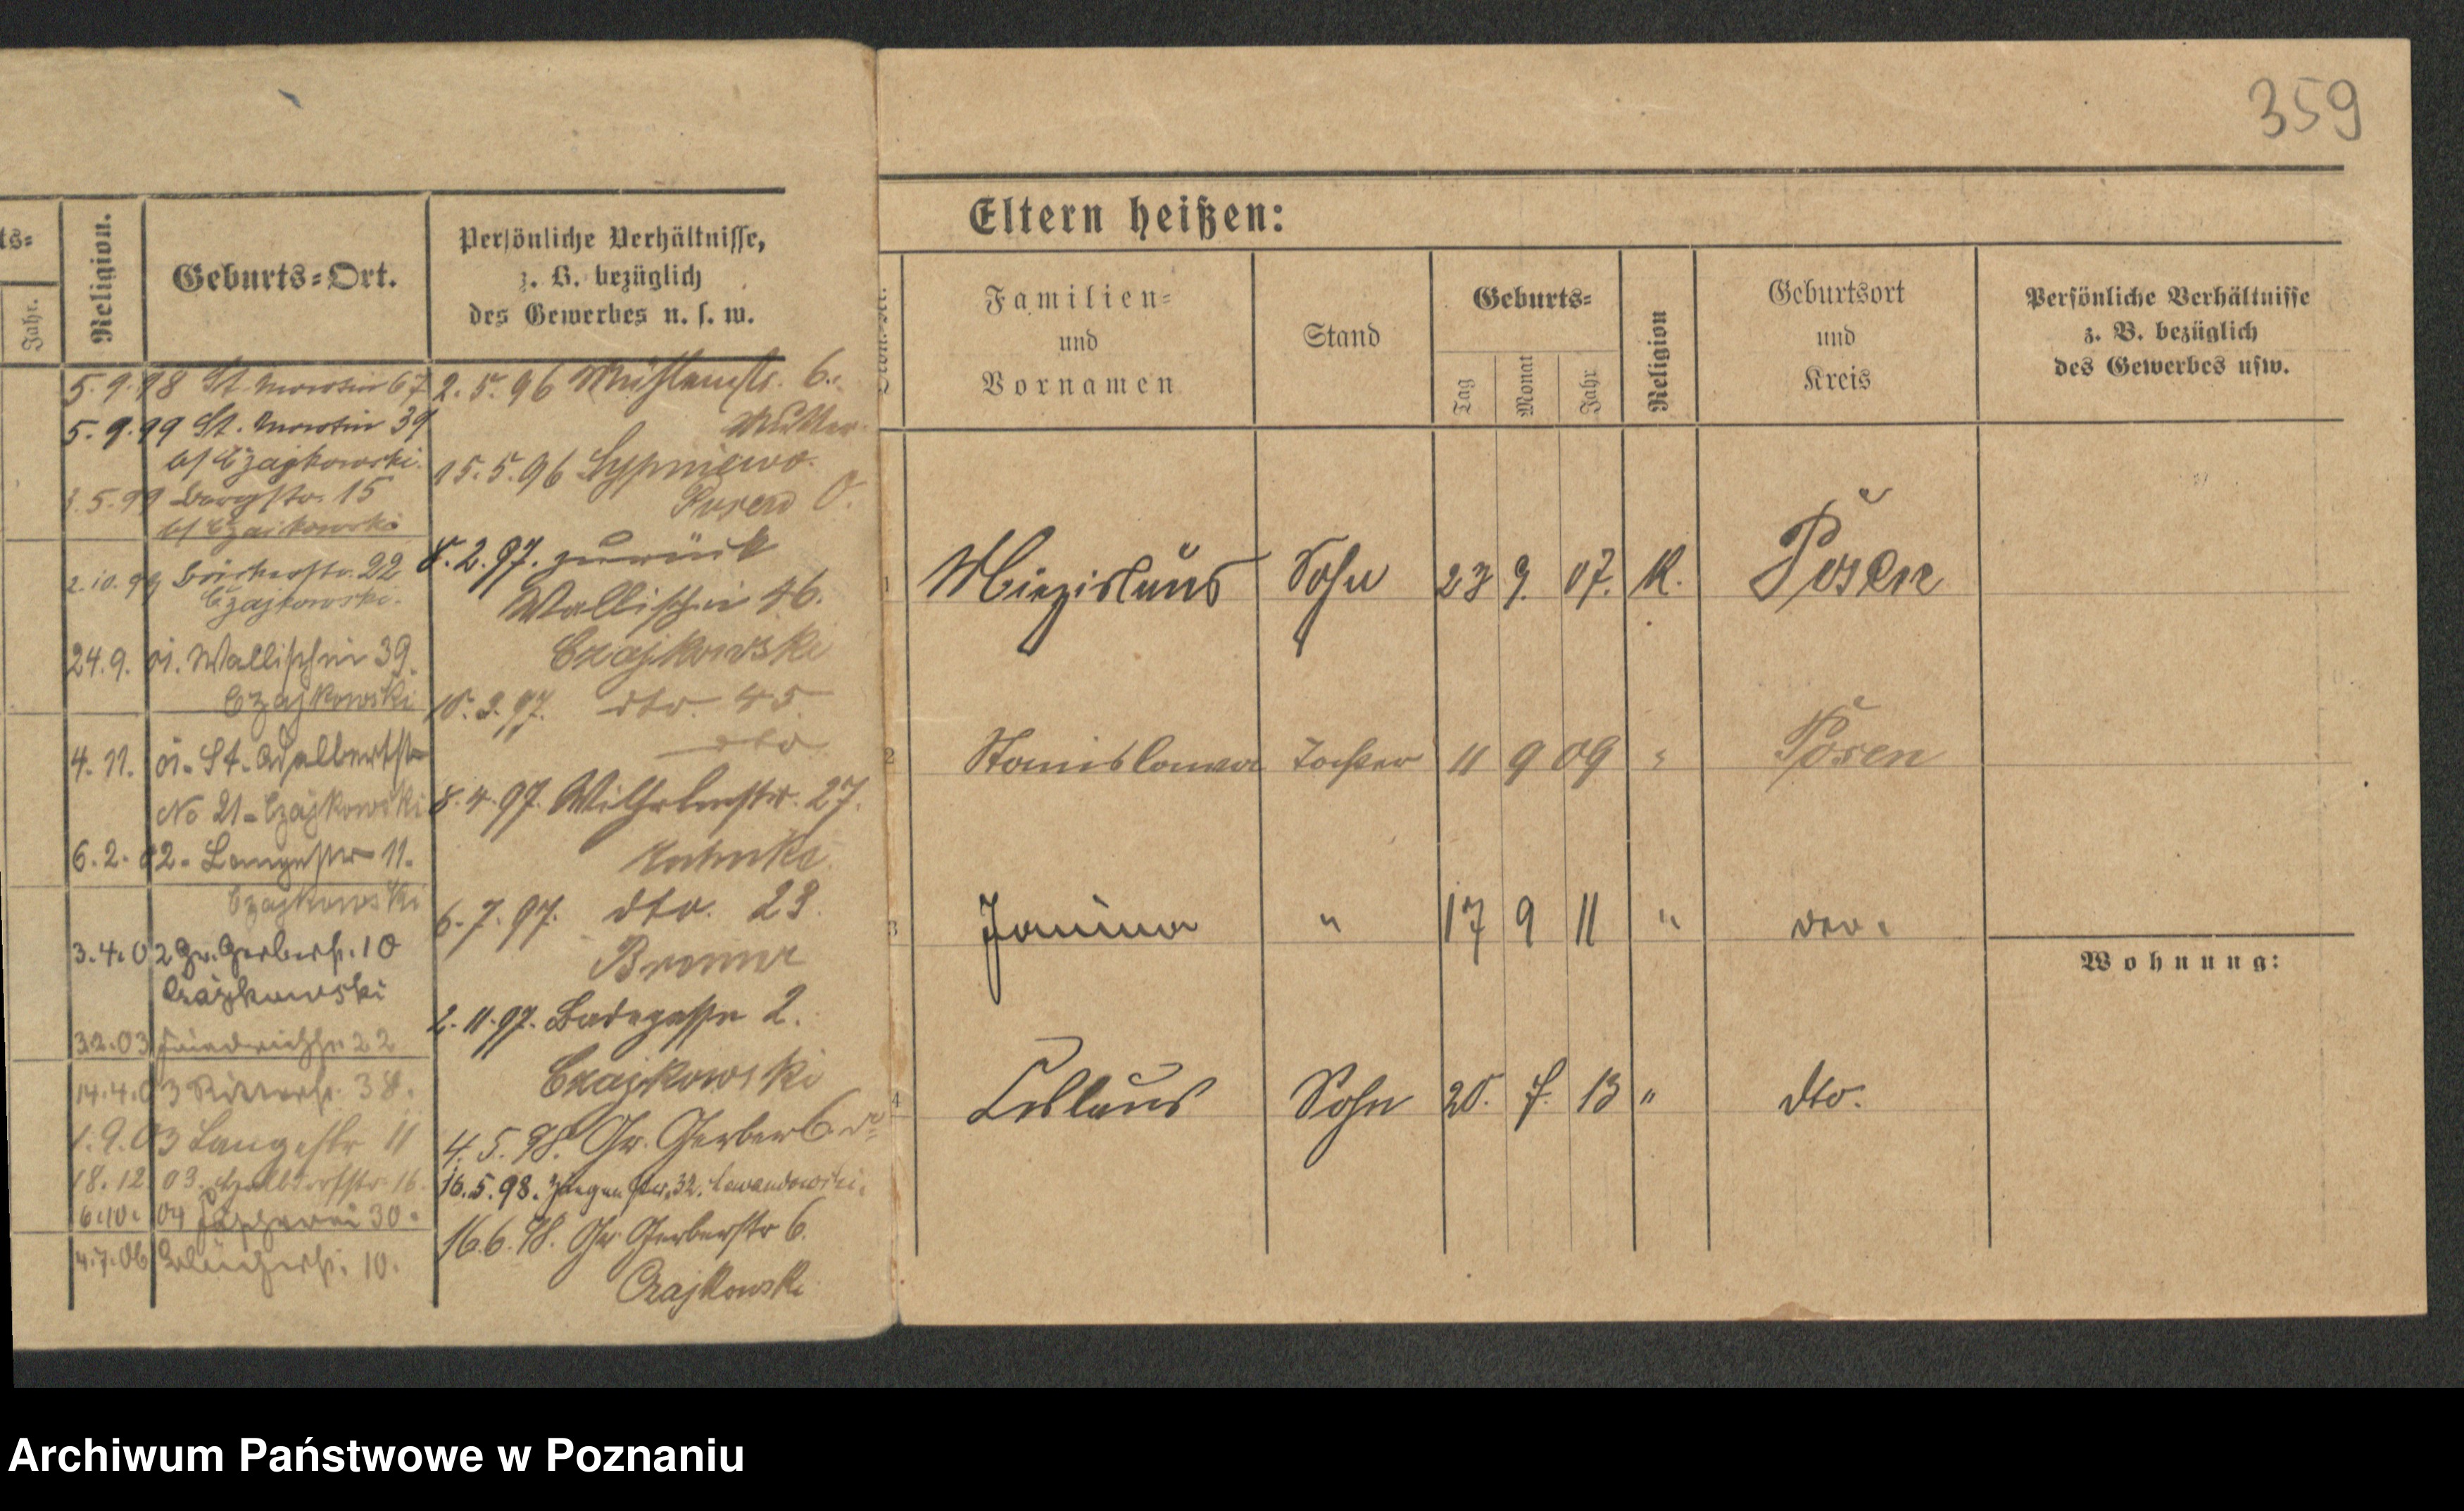 359
ts=
Jahr.
Religion.
Geburts=Ort.
Persönliche Verhältnisse,
z. B. bezüglich
des Gewerbes u. s. w.
5.9.98 St. Martin 67
5.9.99 St. Martin 39
b/ Czajkowski.
5.99 15
b/ Czajkowski
2.10.99 22
Czajkowski.
24.9. 01. Wallischei 39.
Czajkowski
4.11. 01. St. Adalbertst
No 21 - Czajkowski
6.2.02 - Langestr 11.
Czajkowski
3.4.02 Gr. Gerberst. 10
Czajkowski
3.2.03 Friedrichstr 22
14.4.03 Ritterst. 38.
1.9.03 Langestr 11
18.12 03. 16.
6.10. 04 30.
4.7.06 10.
2.5.96 Mühlenstr. 6.
15.5.96 Sypniewo.
Posen O.
8.2.97. zurück
Wallischei 46.
Czajkowski
dto. 45
dto
8.4.97. Wilhelmstr. 27.
6.7.97. dto. 23.
2.11.97. Badegasse 2.
Czajkowski
4.5.98. Gr. Gerber 6
16.5.98. 32. Lewandowski.
16.6.98. Gr Gerberstr 6.
Czajkowski
Eltern heißen:
Familien=
und
Vornamen
Stand
Geburts=
Tag
Monat
Jahr
Religion
Geburtsort
und
Kreis
Persönliche Verhältnisse
z. B. bezüglich
des Gewerbes usw.
1 Miezislaus Sohn 23 9. 07. K. Posen
2 Stanislawa Tochter 11 9 09 " Posen
3 Janina " 17 9 11 " dto.
Wohnung:
4 Cslaus Sohn 20. 7. 13 " dto.
Archiwum Państwowe w Poznaniu